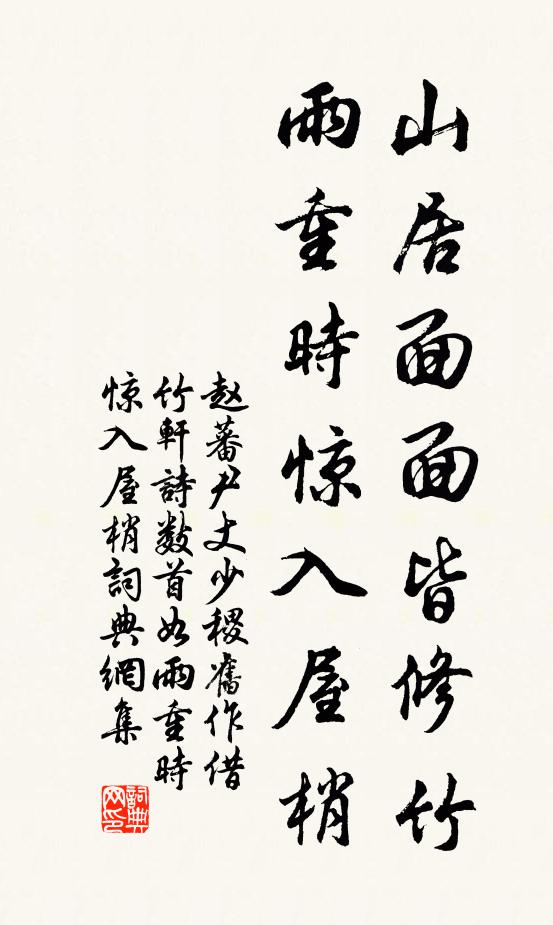 山居面面皆修竹
雨重時惊入屋梢
赵蕃尹丈少稷奮作借
竹軒詩数首如雨重時
惊入屋梢詞典網集
詞典网印